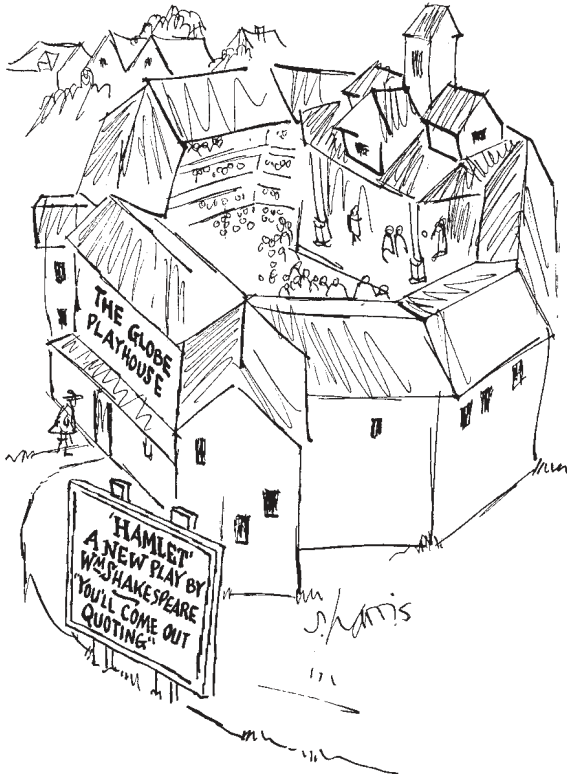 THE GLOBE
PLAYHOUSE
'HAMLET'
A NEW PLAY BY
WM SHAKESPEARE
"YOU'LL COME OUT
QUOTING"
S. Harris